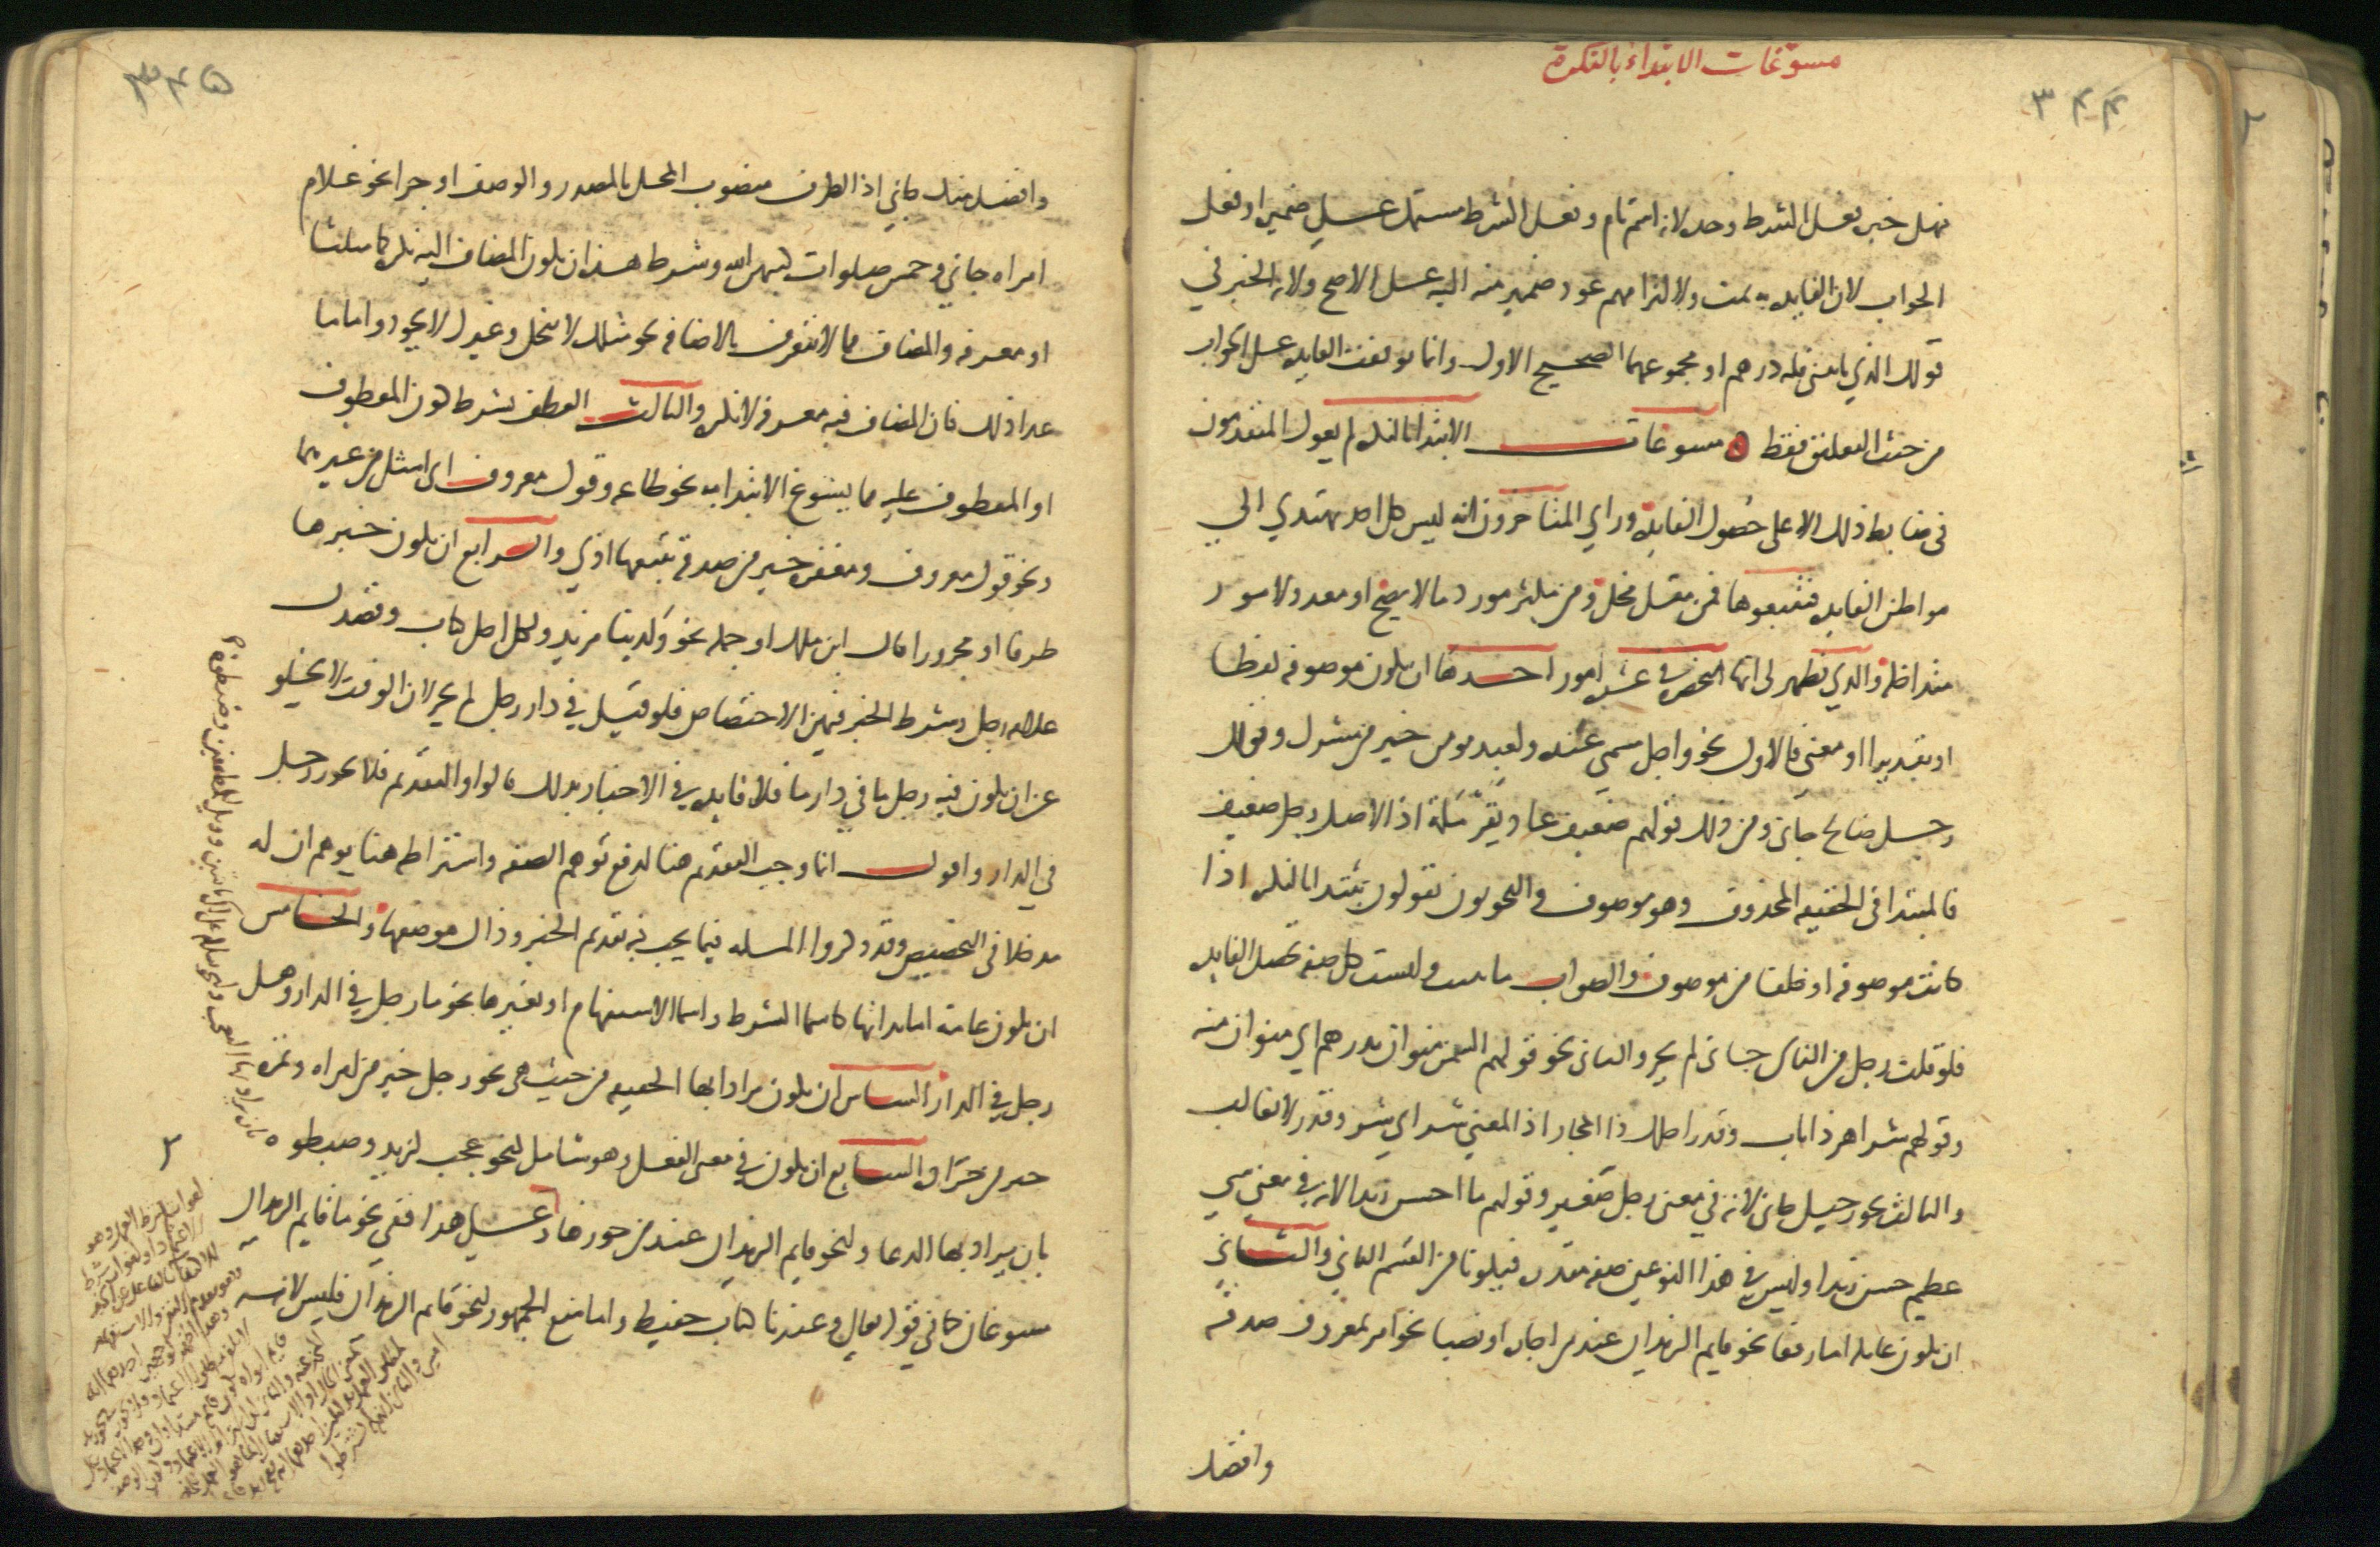 مسوغات الابتداء بالنكرة
٣٤٤
فهل خبره فعل الشرط وحده لانه اسم تام وفعل الشرط مشتمل على ضميره او فعل
الجواب لان الفايدة به تمت ولالتزامهم عود ضمير منه اليه على الاصح ولانه الخبر في
قولك الذي ياتيني فله درهم او مجموعهما الصحيح الاول وانما توقفت الفايدة على الجواب
من حيث التعلق فقط مسوغات الابتدا بالنكرة لم يعول المتقدمون
في ضابط ذلك الا على حصول الفايدة وراي المتاخرون انه ليس كل احد يهتدي الي
مواطن الفايدة فتتبعوها فمن مقل مخل ومن مكثر مورد ما لا يصح او معدد لامور
متداخلة والذي يظهر لي انها منحصرة في عشرة امور احدها ان يكون موصوفة لفظا
او تقديرا او معنى فالاول نحو واجل مسمى عنده ولعبد مومن خير من مشرك وقولك
رجل صالح جاني ومن ذلك قولهم ضعيف عاد بقرملة اذ الاصل رجل ضعيف
فالمبتدا في الحقيقة المحذوف وهو موصوف والنحويون يقولون يبتدا بالنكرة اذا
كانت موصوفة او خلفا من موصوف والصواب ما بينت وليست كل صفة تحصل الفايدة
فلو قلت رجل من الناس جاني لم يجز والثاني نحو قولهم السمن منوان بدرهم اي منوان منه
وقولهم شر اهر ذا ناب وقدر احلك ذا المجاز اذ المعني شر اي شر وقدر لا يغالب
والثالث نحو رجيل جاني لانه في معنى رجل صغير وقولهم ما احسن زيدا لانه في معني شي
عظيم حسن زيدا وليس في هذا النوعين صفة مقدرة فيكونا من القسم الثاني والثاني
ان يكون عاملة اما رفعا نحو قايم الزيدان عند من اجازه او نصبا نحو امر بمعروف صدقة
وافضل
٣٤٥
وافضل منك جاني اذ الظرف منصوب المحل بالمصدر والوصف او جرا نحو غلام
امراة جاني وخمس صلوات كتبهن الله وشرط هذا ان يكون المضاف اليه نكرة كما مثلنا
او معرفة والمضاف مما لا يتعرف بالاضافة نحو مثلك لا يبخل وغيرك لا يجود واما ما
عدا ذلك فان المضاف فيه معرفة لا نكرة والثالث العطف بشرط كون المعطوف
او المعطوف عليه مما يسوغ الابتدا به نحو طاعة وقول معروف اي امثل من غيرهما
ونحو قول معروف ومغفرة خير من صدقة يتبعها اذي والرابع ان يكون خبرها
ظرفا او مجرورا قال ابن ملك او جملة نحو ولدينا مزيد ولكل اجل كتاب وقصدك
غلامه رجل وشرط الخبر فيهن الاختصاص فلو قيل في دار رجل لم يجز لان الوقت لا يخلو
عن ان يكون فيه رجل ما في دار ما فلا فايدة في الاخبار بذلك قالوا والتقديم فلا يجوز رجل
في الدار واقول انما وجب التقديم هنا لدفع توهم الصفة واشتراطه هنا يوهم ان له
مدخلا في التخصيص وقد ذكروا المسلة فيما يجب فيه تقديم الخبر وذاك موضعها والخامس
ان يكون عامة اما بذاتها كاسما الشرط واسما الاستفهام او بغيرها نحو ما رجل في الدار وهل
رجل في الدار السادس ان يكون مرادا بها الحقيقة من حيث هي نحو رجل خير من امراة وتمرة
خير من جرادة والسابع ان يكون في معنى الفعل وهو شامل لنحو عجب لزيد وضبطوه
بان يراد بها الدعا ولنحو قايم الزيدان عند من جوزها وعلى هذا ففي نحو ما قايم الزيدان
مسوغان كما في قوله تعالى وعندنا كتاب حفيظ واما منع الجمهور لنحو قايم الزيدان فليس لانه